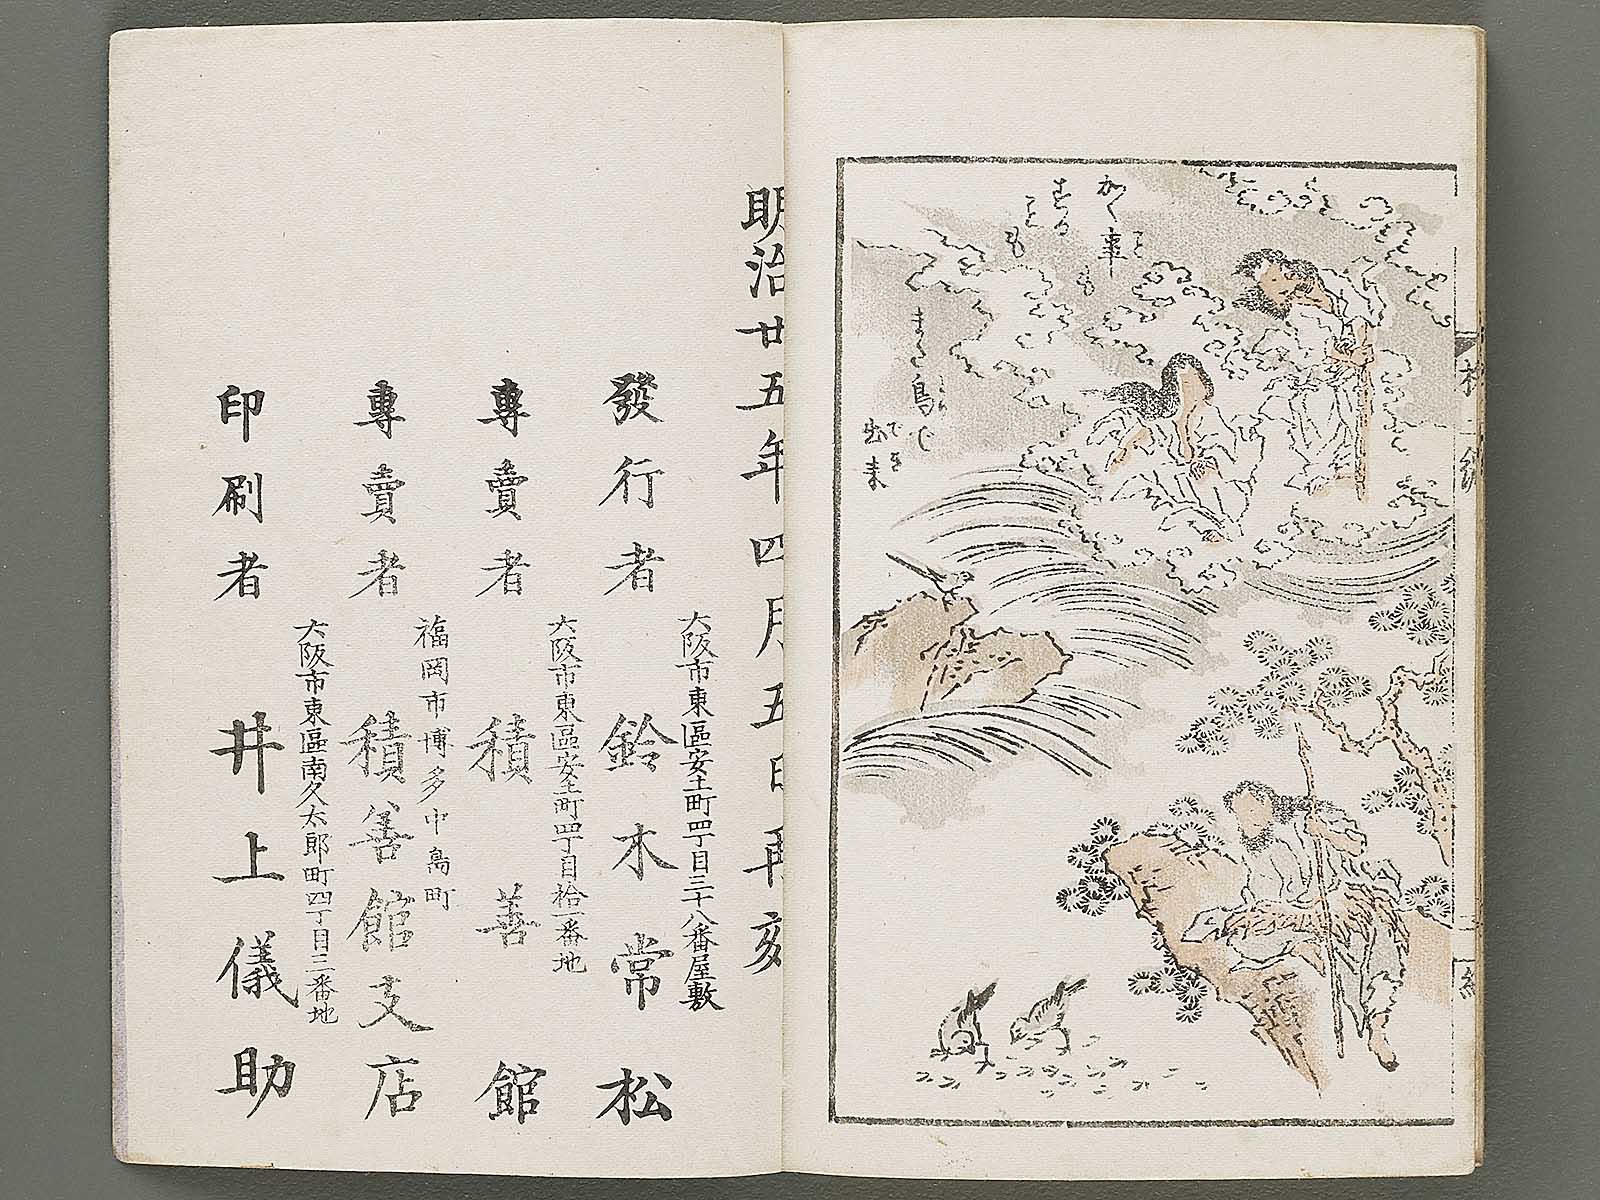 加く事も
するとも
また鳥で
出来
明治廿五年四月五日再刻
大阪市東區安土町四丁目三十八番屋敷
發行者 鈴木常松
大阪市東區安土町四丁目拾一番地
專賣者 積善館
福岡市博多中島町
專賣者 積善館支店
大阪市東區南久太郎町四丁目三番地
印刷者 井上儀助